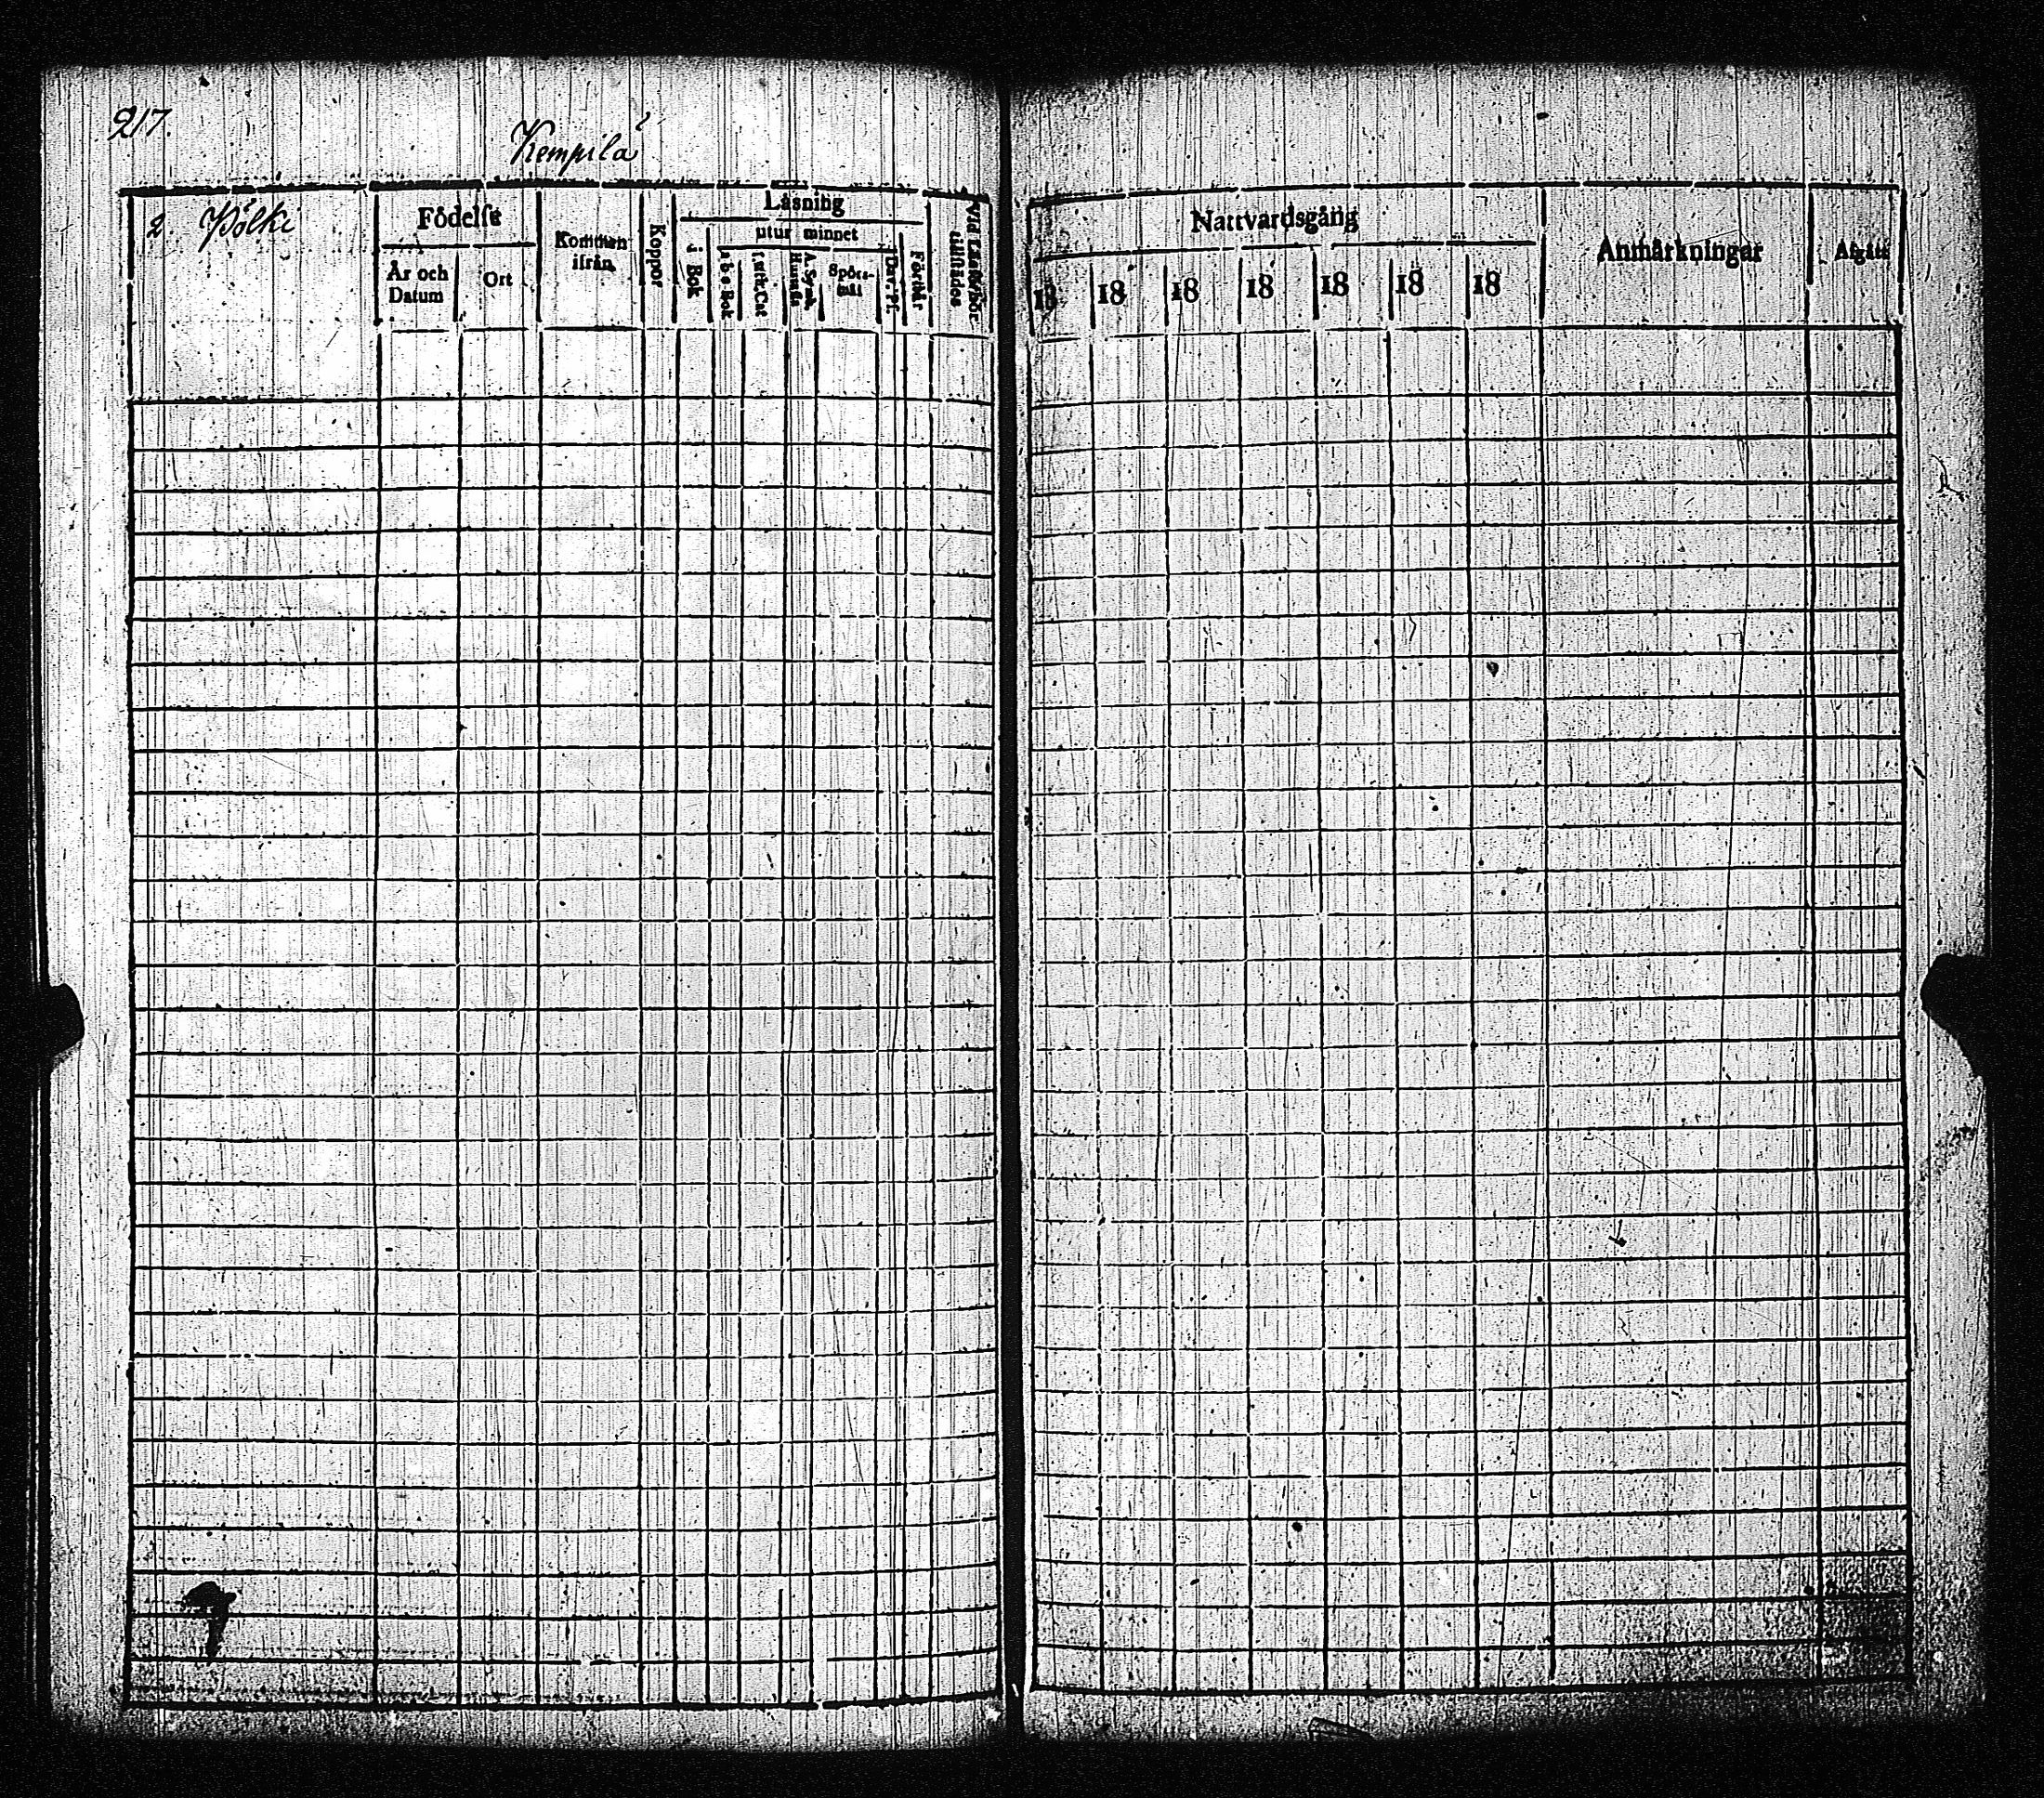 217.
Kempilä
2. Pölki
Födelse
År och Datum
Ort
Kommen ifrån
Koppor
Läsning
i Bok
utur minnet
a b c Bok
Luth. Cat
A. Symb. Hustafla
Spörsmål
Dav. Ps.
Förstår
Vid Läsförhör tillstädes
Nattvardsgång
18 18 18 18 18 18 18
Anmärkningar
Afgått